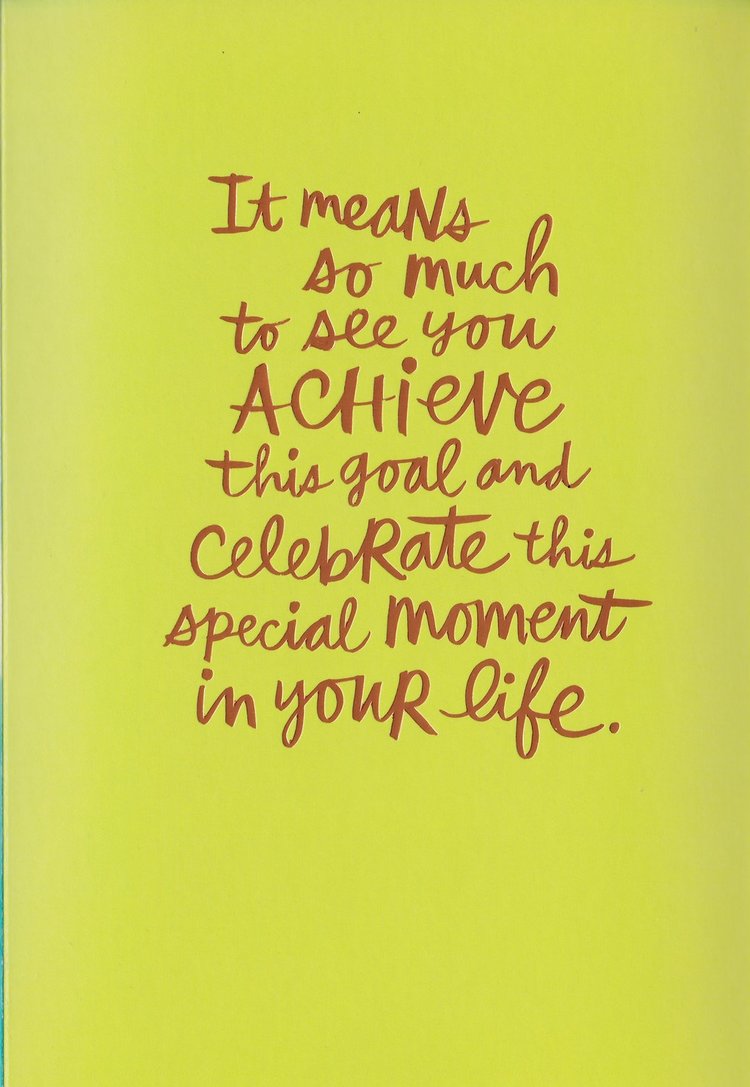 It means
so much
to see you
ACHieve
this goal and
celebRate this
special moment
in youR life.